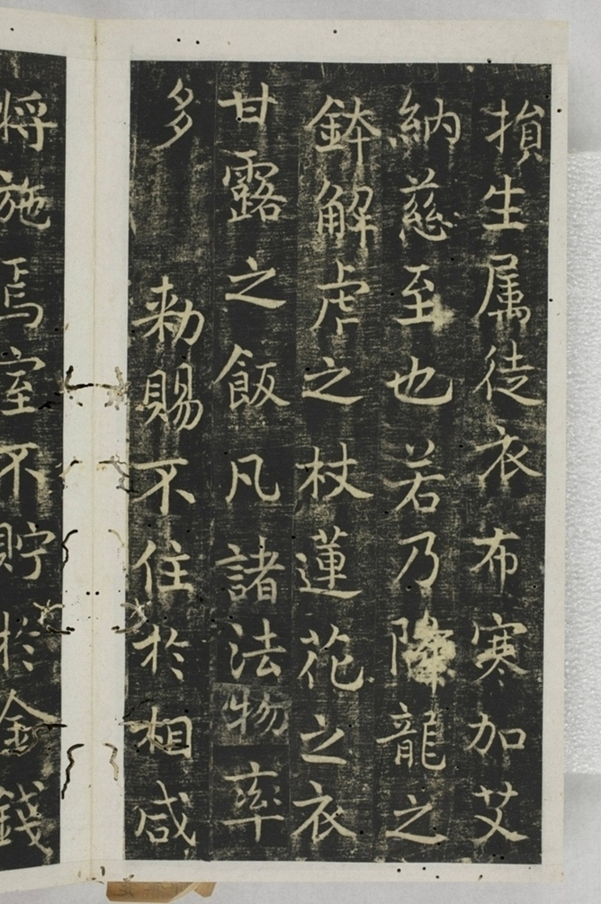 損生属徒衣布寒加艾
納慈至也若乃降龍之
鉢解虎之杖蓮花之衣
甘露之飯凡諸法物率
多 勑賜不住於相咸
将施焉室不貯於金錢